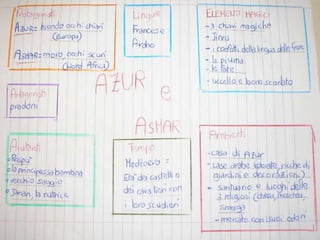 Protagonisti
AZUR: biondo occhi chiari
(Europa)
ASMAR: moro, occhi scuri
(Nord Africa)
Lingue
Francese
Arabo
ELEMENTI MAGICI
- 3 chiavi magiche
- Jinns
- i confetti della lingua delle fate
- la piuma
- le fate
- uccello e leone scarlatto
Antagonisti
predoni
AZUR
e
ASMAR
Aiutanti
Crapoux
la principessa bambina
vecchio saggio
Jenan, la nutrice
Tempo
Medioevo =
Età dei castelli e
dei cavalieri con
i loro scudieri
Ambienti
- casa di Azur
- case arabe lodorate, ricche di
giardini e decorazioni)
= santuario e luoghi delle
3 religioni (chiesa, moschea,
sinagoga
- mercato con i suoi odori